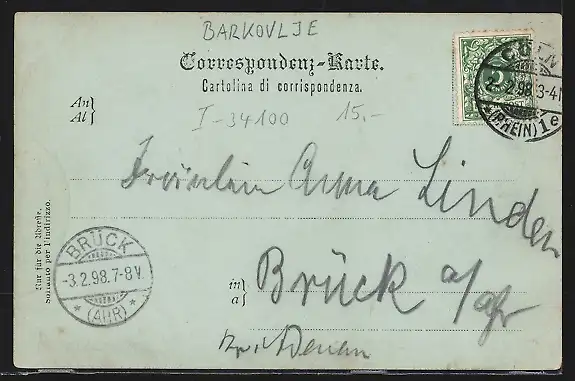 BARKOVLJE
Correspondenz-Karte.
Cartolina di corrispondenza.
An
Al
I-34100 15.-
Fräulein Anna Linden
in
a
Brück a/Ahr
Nur für die Adresse.
Soltanto per l'indirizzo.
BRÜCK
-3.2.98.7-8V.
* (AHR) *
CÖLN
2.2.98. 3-4N
(RHEIN) 1e
5